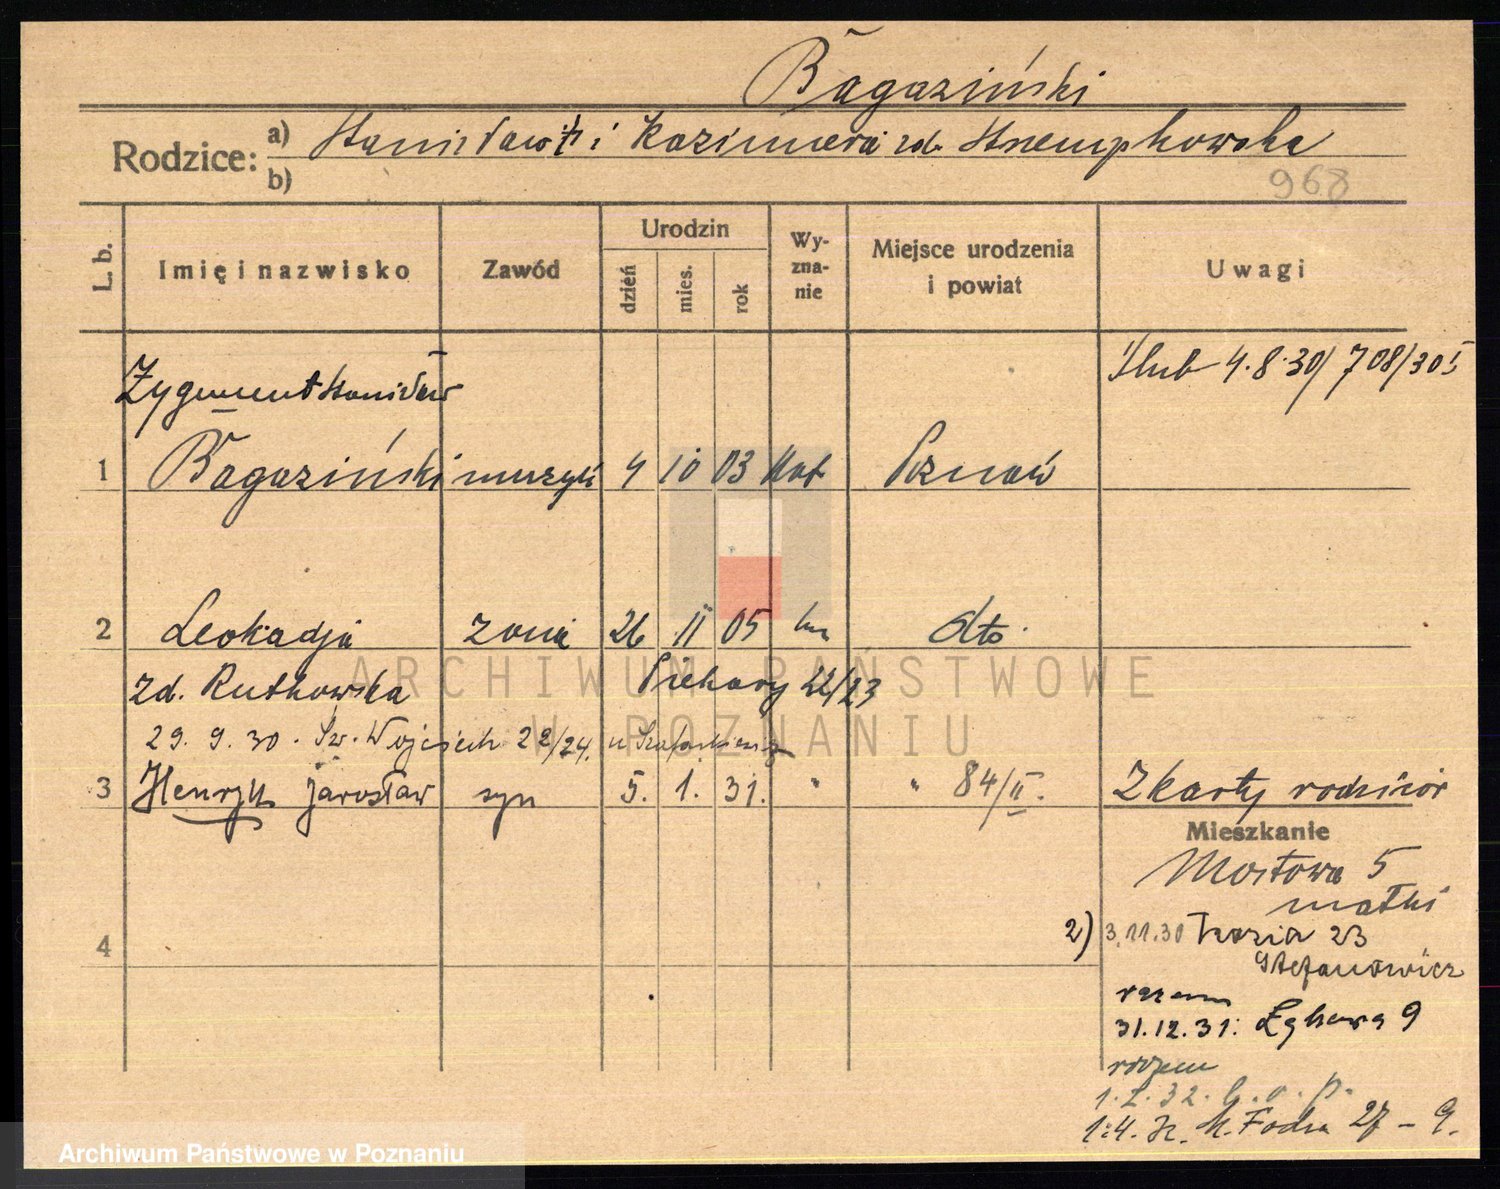 Bagaziński
Rodzice: a) Stanisław i Kazimiera zd. Strempkowska
b)
968
L. b.
Imię i nazwisko
Zawód
Urodzin
dzień
mies.
rok
Wy-
zna-
nie
Miejsce urodzenia
i powiat
Uwagi
Ślub 4.8.30/708/30 I
Zygmunt Stanisław
1 Bagaziński muzyk 4 10 03 kat Poznań
2 Leokadja żona 26 11 05 dto.
zd. Rutkowska Piekary 22/23
29. 9. 30. Św. Wojciech 22/24. u Szafarkiewicz
3 Henryk Jarosław syn 5. 1. 31. " " 84/II.
Z karty rodziców
Mieszkanie
Mostowa 5
matki
4
2) 3.11.30 23
Stefanowicz
razem
31.12.31. Łąkowa 9
razem
1.2.32.
1.4. 32. M. Focha 27 - 9.
ARCHIWUM PAŃSTWOWE
W POZNANIU
Archiwum Państwowe w Poznaniu